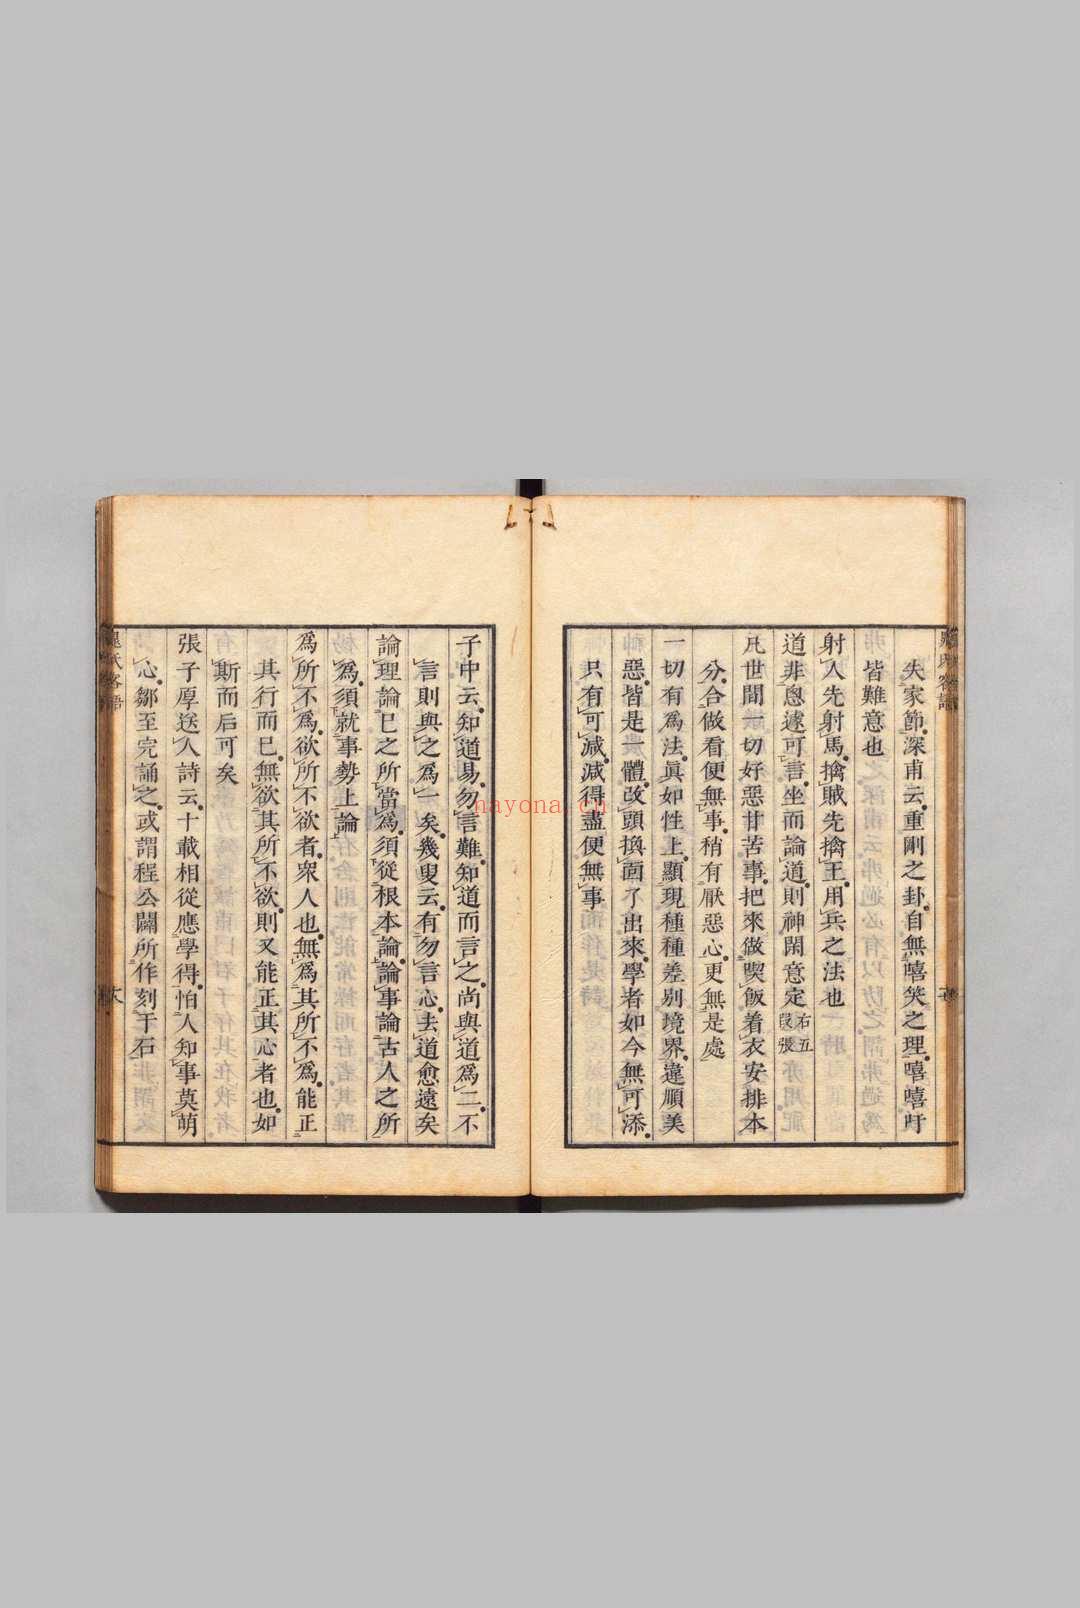 失家節深甫云重剛之卦自無嘻笑之理嘻嘻吁
皆難意也
射人先射馬擒賊先擒王用兵之法也
道非悤遽可言坐而論道則神閑意定右五段張
凡世間一切好惡甘苦事把來做喫飯着衣安排本
分合做看便無事稍有厭惡心更無是處
一切有為法眞如性上顯現種種差别境界違順美
惡皆是一體改頭換面了出來學者如今無可添
只有可減減得盡便無事
子中云知道易勿言難知道而言之尚與道為二不
言則與之為一矣幾叟云有勿言心去道愈遠矣
論理論己之所當為須從根本論論事論古人之所
為須就事勢上論
為所不為欲所不欲者衆人也無為其所不為能正
其行而已無欲其所不欲則又能正其心者也如
斯而后可矣
張子厚送人詩云十載相從應學得怕人知事莫萌
心鄒至完誦之或謂程公闢所作刻于石
晁氏客語
nayona.cn